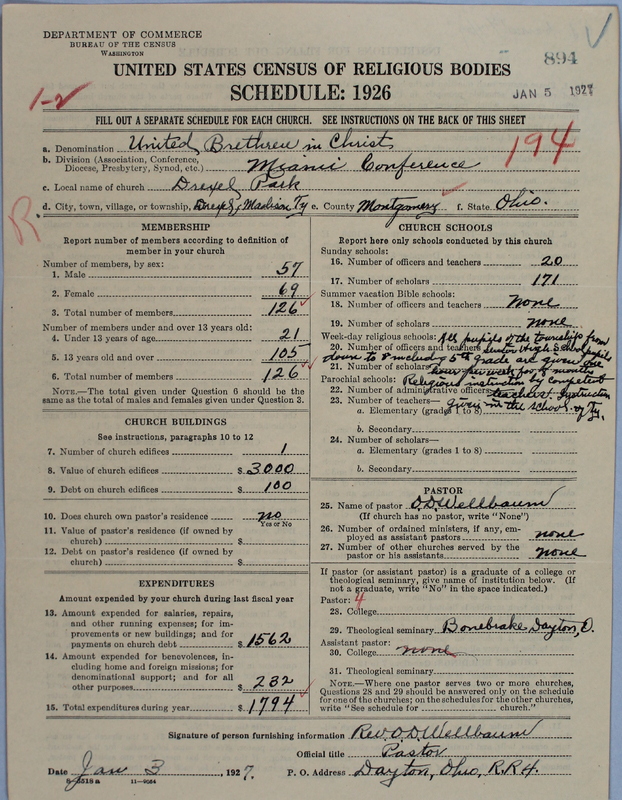 DEPARTMENT OF COMMERCE
BUREAU OF THE CENSUS
WASHINGTON
894
UNITED STATES CENSUS OF RELIGIOUS BODIES
SCHEDULE: 1926
JAN 5 1927
1-2
FILL OUT A SEPARATE SCHEDULE FOR EACH CHURCH. SEE INSTRUCTIONS ON THE BACK OF THIS SHEET
a. Denomination United Brethren in Christ
194
b. Division (Association, Conference, Diocese, Presbytery, Synod, etc.) Miami Conference
c. Local name of church Drexel Park
d. City, town, village, or township, Drexel, Madison Tp e. County Montgomery f. State Ohio.
R
MEMBERSHIP
Report number of members according to definition of
member in your church
Number of members, by sex:
1. Male 57
2. Female 69
3. Total number of members 126
Number of members under and over 13 years old:
4. Under 13 years of age 21
5. 13 years old and over 105
6. Total number of members 126
NOTE.—The total given under Question 6 should be the
same as the total of males and females given under Question 3.
CHURCH BUILDINGS
See instructions, paragraphs 10 to 12
7. Number of church edifices 1
8. Value of church edifices $ 3000
9. Debt on church edifices $ 100
10. Does church own pastor's residence no
Yes or No
11. Value of pastor's residence (if owned by
church) $
12. Debt on pastor's residence (if owned by
church) $
EXPENDITURES
Amount expended by your church during last fiscal year
13. Amount expended for salaries, repairs,
and other running expenses; for im-
provements or new buildings; and for
payments on church debt $ 1562
14. Amount expended for benevolences, in-
cluding home and foreign missions; for
denominational support; and for all
other purposes $ 232
15. Total expenditures during year $ 1794
CHURCH SCHOOLS
Report here only schools conducted by this church
Sunday schools:
16. Number of officers and teachers 20
17. Number of scholars 171
Summer vacation Bible schools:
18. Number of officers and teachers None
19. Number of scholars none
Week-day religious schools: All pupils of the township from
20. Number of officers and teachers Junior High School pupils
down to & including 5th grade are given one
21. Number of scholars hour per week for 8 months
Parochial schools: Religious instruction by competent
22. Number of administrative officers teachers. Instruction
23. Number of teachers— given in the schools of Tp.
a. Elementary (grades 1 to 8)
b. Secondary
24. Number of scholars—
a. Elementary (grades 1 to 8)
b. Secondary
PASTOR
25. Name of pastor O.D. Wellbaum
(If church has no pastor, write "None")
26. Number of ordained ministers, if any, em-
ployed as assistant pastors none
27. Number of other churches served by the
pastor or his assistants none
If pastor (or assistant pastor) is a graduate of a college or
theological seminary, give name of institution below. (If
not a graduate, write "No" in the space indicated.)
Pastor: 4
28. College
29. Theological seminary Bonebrake Dayton, O.
Assistant pastor:
30. College none
31. Theological seminary
NOTE.—Where one pastor serves two or more churches,
Questions 28 and 29 should be answered only on the schedule
for one of the churches; on the schedules for the other churches,
write "See schedule for church."
Signature of person furnishing information Rev. O.D. Wellbaum
Official title Pastor
Date Jan 3, 1927. P. O. Address Dayton, Ohio, R.R.4.
8-5518a 11-9064